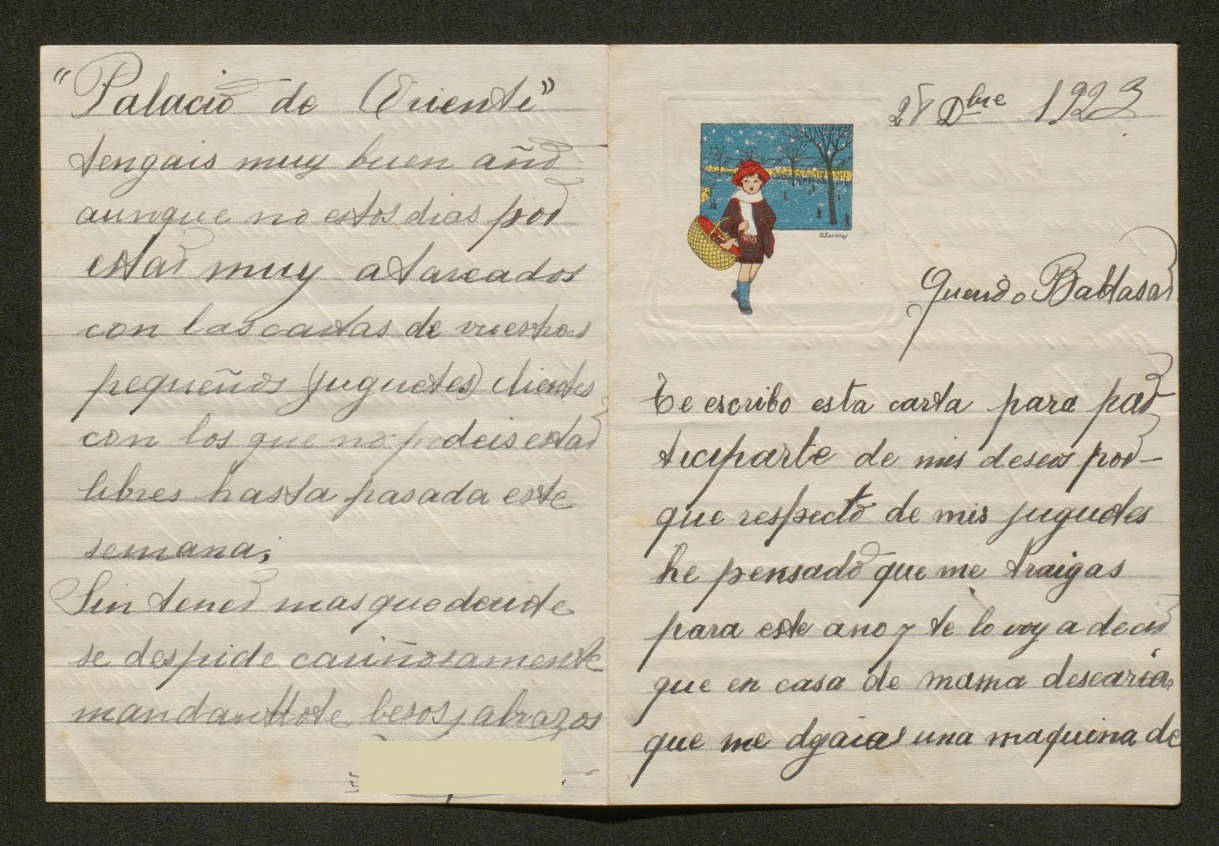 28 Dbre 1923
Querido Baltasar
Te escribo esta carta para par-
ticiparte de mis deseos por-
que respecto de mis juguetes
he pensado que me traigas
para este ano y te lo voy a decir
que en casa de mama desearia
que me dgaias una maquina de
"Palacio de Oriente"
tengais muy buen año
aunque no estos dias por
estar muy atareados
con las cartas de vuestros
pequeños (juguetes) clientes
con los que no podeis estar
libres hasta pasada este
semana;
Sin tener mas que decirte
se despide cariñosamente
mandandtote besos y abrazos